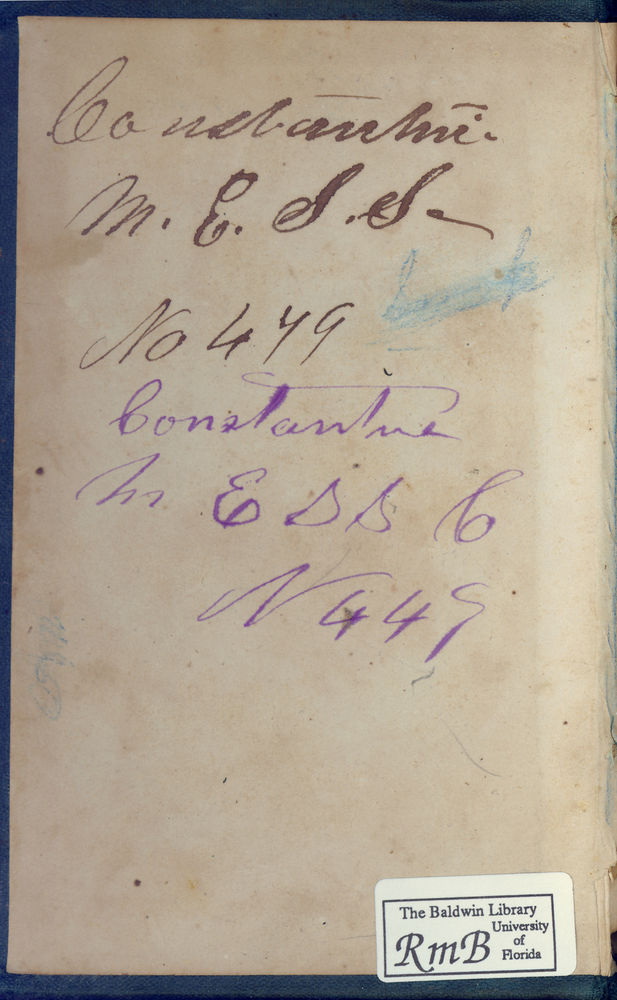 Constantine
M. E. S. S.
No 479
Constantine
M E S S C
N 449
The Baldwin Library
University
of
Florida
RmB